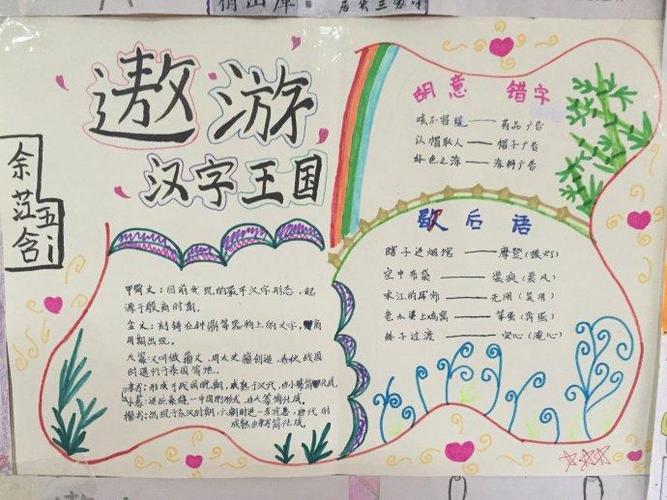 遨游
汉字王国
余茳含
五1
甲骨文:目前发现的最早汉字形态,起
源于殷商时期。
金文:刻铸在钟鼎等器物上的文字,商
周期出现。
大篆又叫做籀文,周太史籀创造,春秋战国
时通行于秦国等地。
隶书:形成于战国晚期,成熟于汉代,由小篆简化成。
小篆:
楷书:出现于东汉时期,六朝时进一步完善,唐代时
成熟由隶书简化成。
胡意 错字
咳不容缓——药品广告
以帽取人——帽子广告
好色之涂——涂料广告
歇后语
瞎子进烟馆——摩登(摸灯)
空中布袋——装疯(装风)
宋江的军师——无用(吴用)
包水婆上鸡窝——笨蛋(奔蛋)
矮子过渡——安心(淹心)